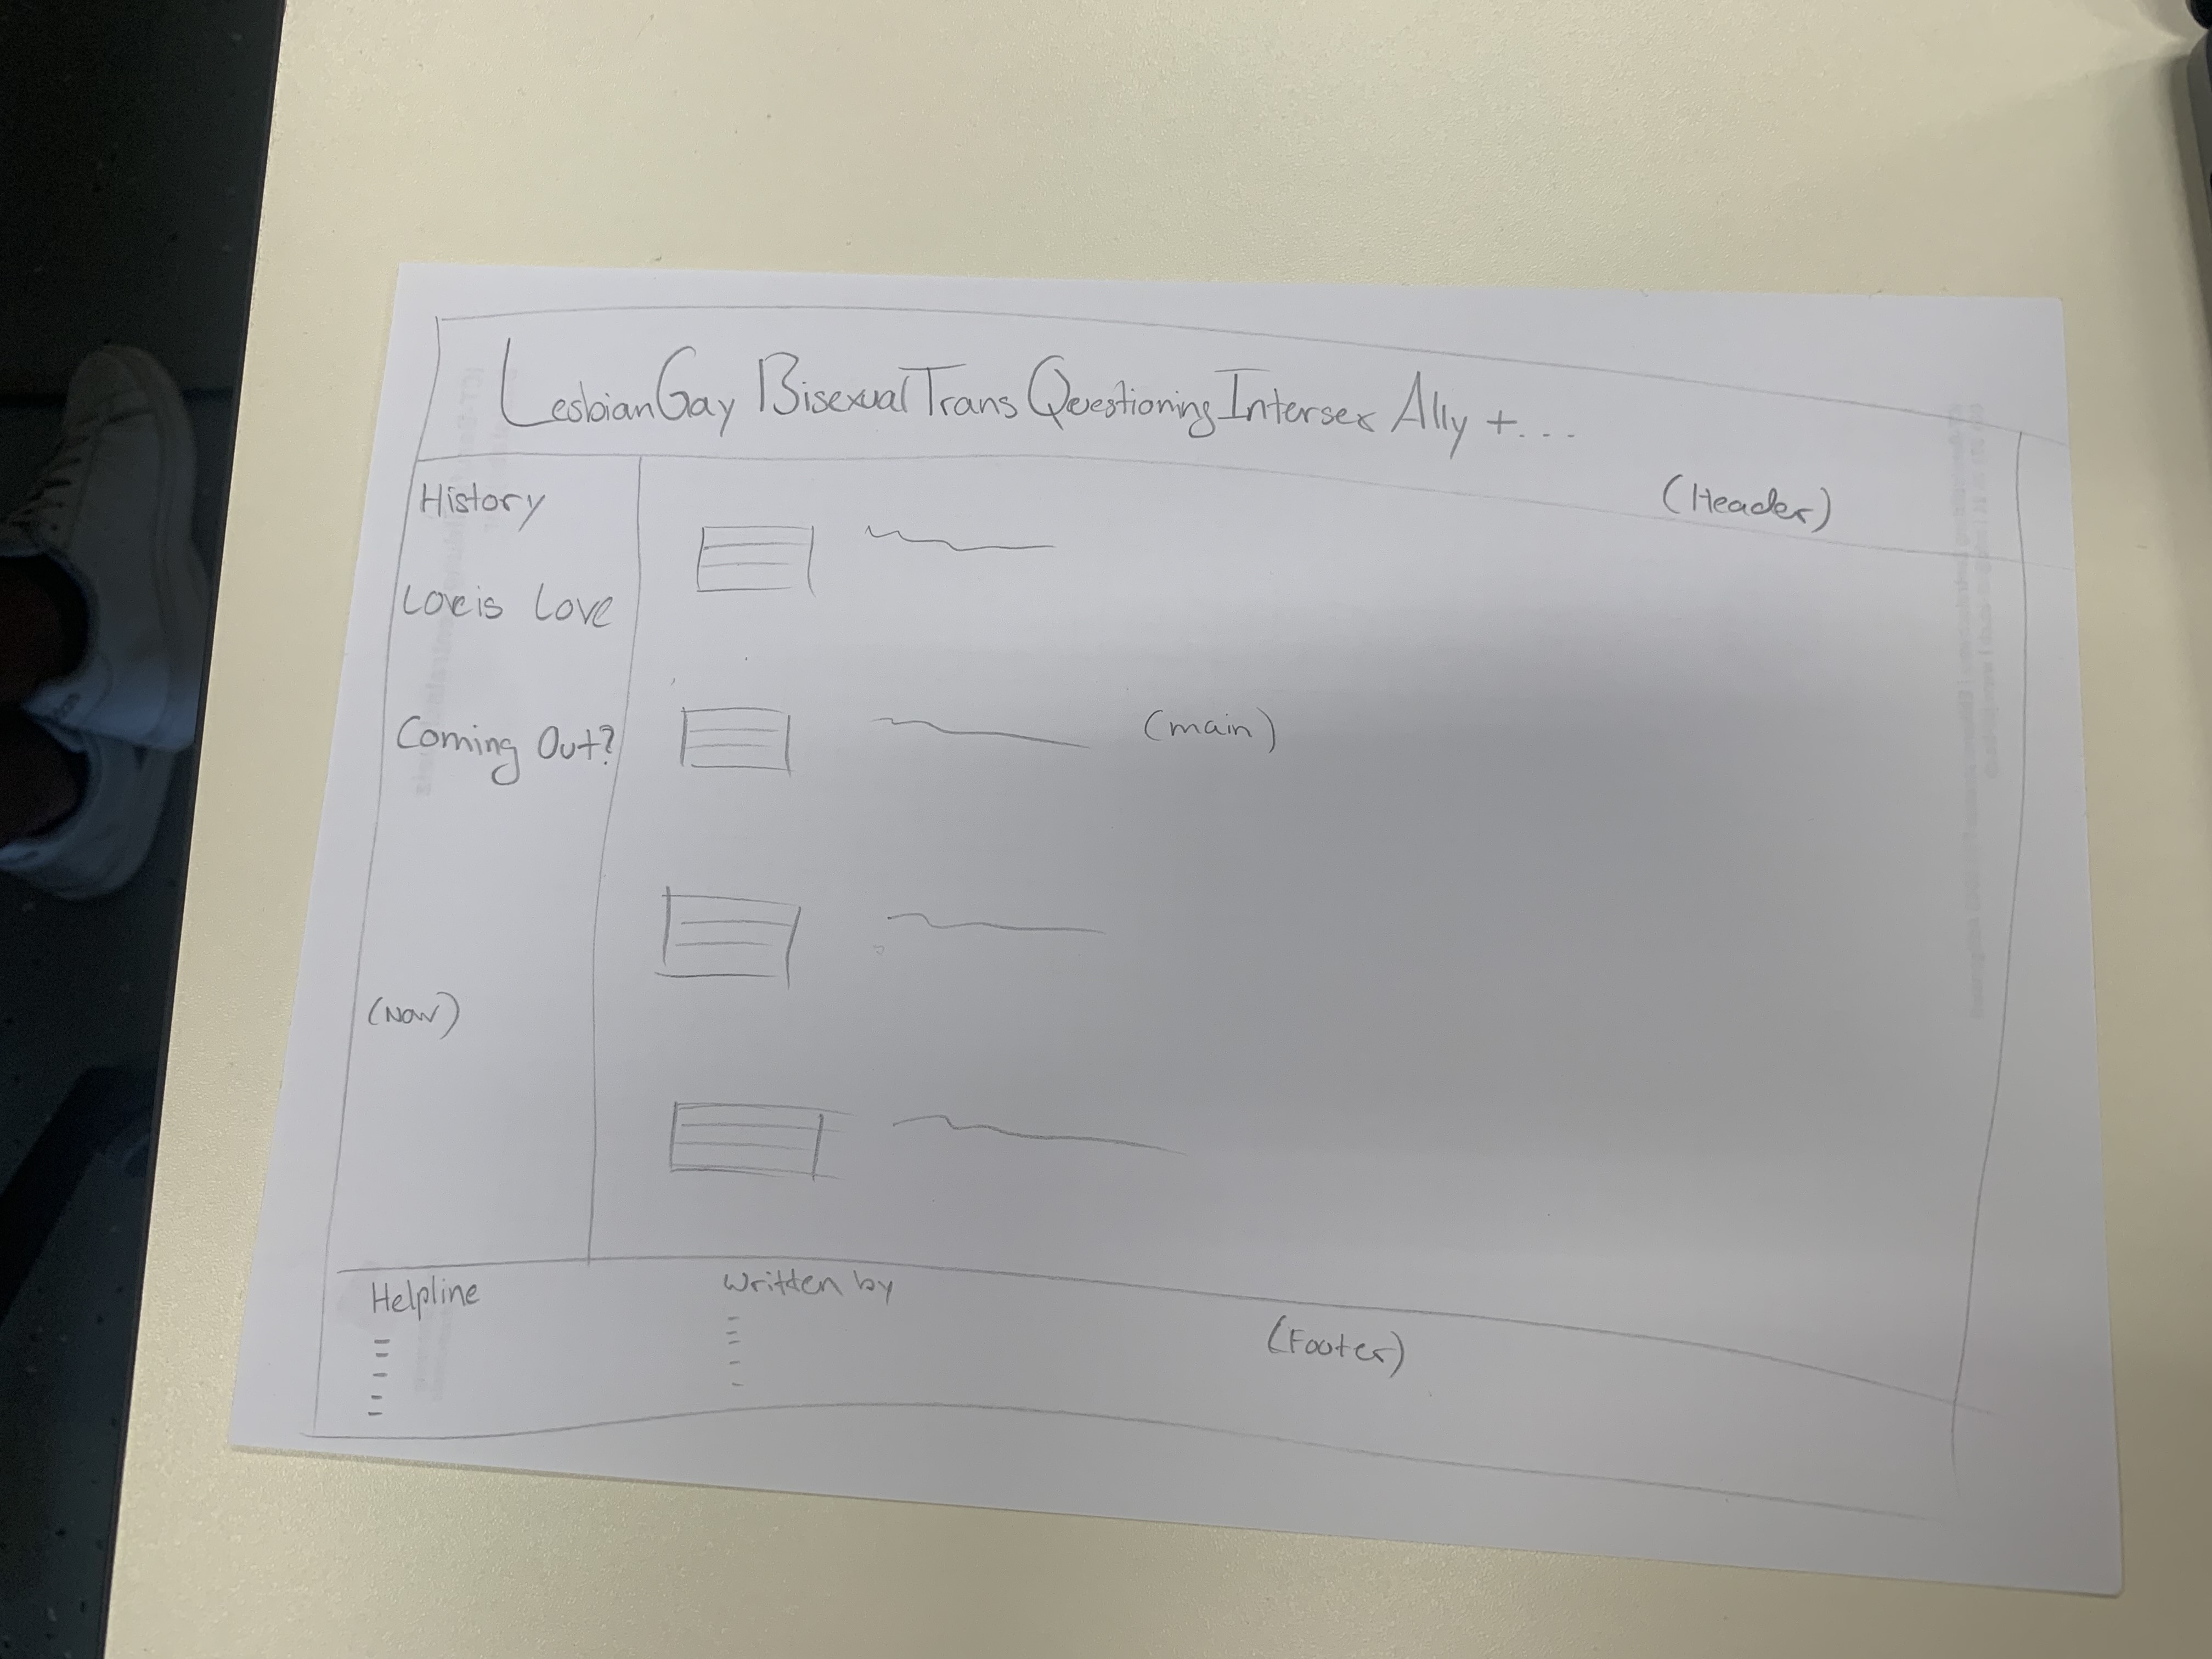 Lesbian Gay Bisexual Trans Questioning Intersex Ally +...
(Header)
History
Love is Love
Coming Out?
(main)
(Nav)
Helpline
Written by
(Footer)